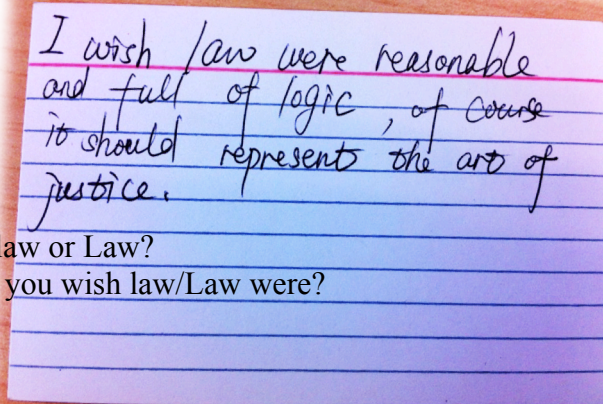 I wish law were reasonable
and full of logic, of course
it should represent the art of
justice.
law or Law?
you wish law/Law were?